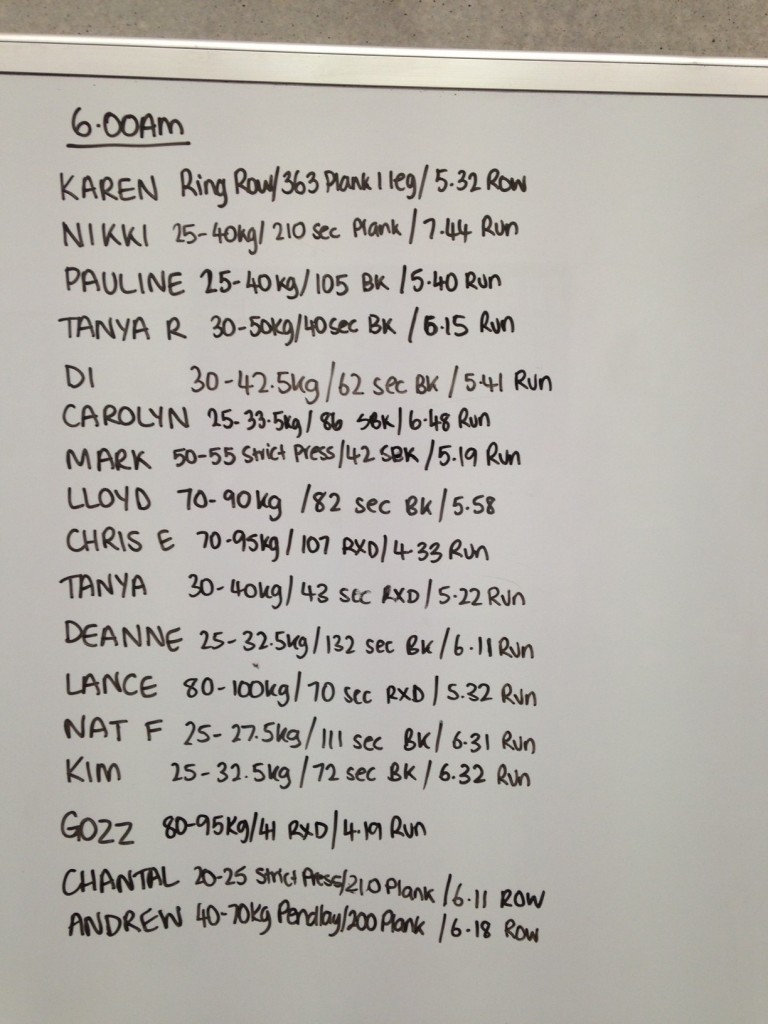 6.00AM
KAREN Ring Row/363 Plank 1 leg/5.32 Row
NIKKI 25-40kg/210 sec Plank/7.44 Run
PAULINE 25-40kg/105 BK/5.40 Run
TANYA R 30-50kg/40sec BK/6.15 Run
DI 30-42.5kg/62 sec BK/5.41 Run
CAROLYN 25-33.5kg/86 SBK/6.48 Run
MARK 50-55 Strict Press/42 SBK/5.19 Run
LLOYD 70-90kg/82 sec BK/5.58
CHRIS E 70-95kg/107 RXD/4.33 Run
TANYA 30-40kg/43 sec RXD/5.22 Run
DEANNE 25-32.5kg/132 sec BK/6.11 Run
LANCE 80-100kg/70 sec RXD/5.32 Run
NAT F 25-27.5kg/111 sec BK/6.31 Run
KIM 25-32.5kg/72 sec BK/6.32 Run
GOZZ 80-95kg/41 RXD/4.19 Run
CHANTAL 20-25 Strict Press/210 Plank/6.11 ROW
ANDREW 40-70kg Pendlay/200 Plank/6.18 Row